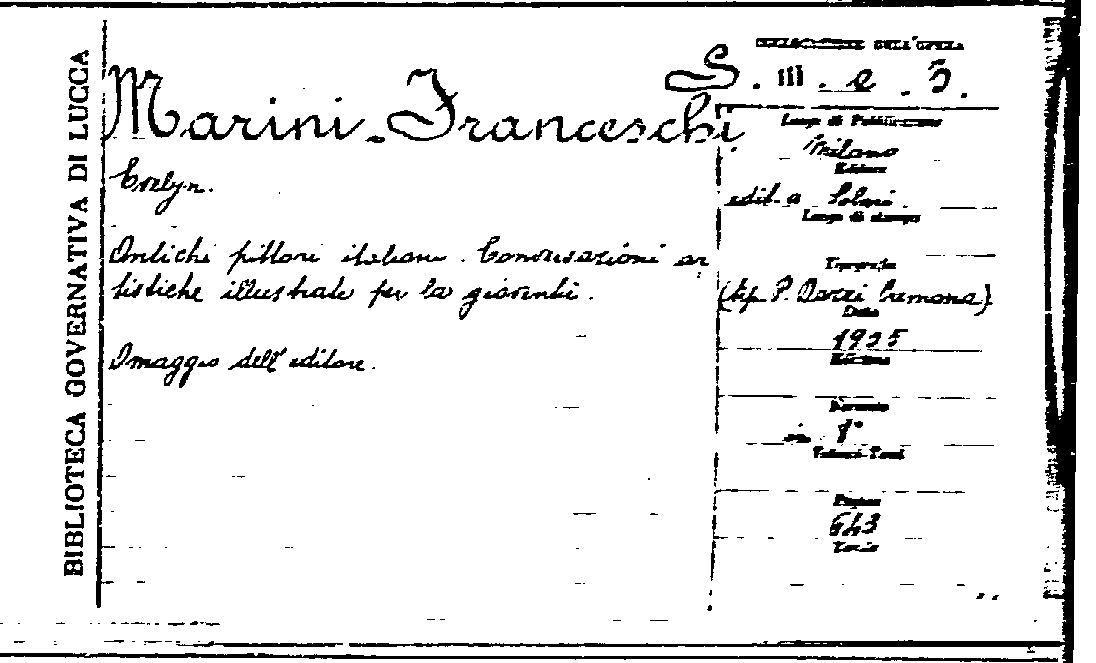 BIBLIOTECA GOVERNATIVA DI LUCCA
Marini-Franceschi
Evelyn.
Antichi pittori italiani. Conversazioni ar
tistiche illustrate per la gioventù.
Omaggio dell'editore.
COLLOCAZIONE DELL'OPERA
S. III. e. 5.
Luogo di Pubblicazione
Milano
Editore
edit-a Solmi.
Luogo di stampa
Tipografia
(tip. P. Cremona)
Data
1925
Edizione
Formato
in 8°
Volumi-Tomi
Pagine
643
Tavole